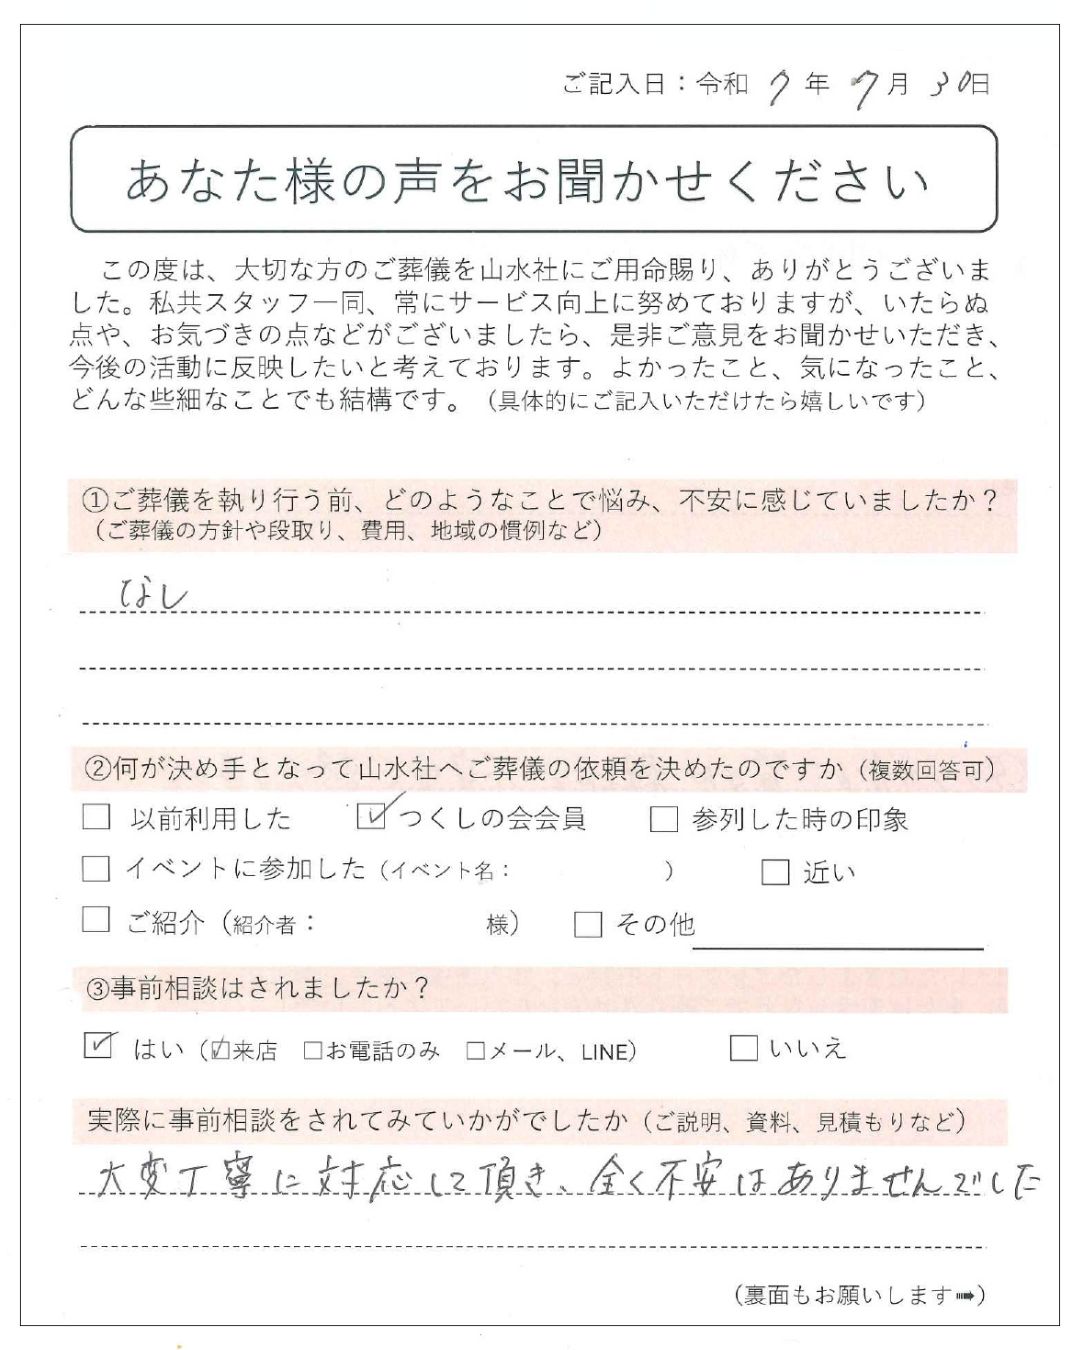 ご記入日：令和 7 年 7 月 30日
あなた様の声をお聞かせください
この度は、大切な方のご葬儀を山水社にご用命賜り、ありがとうございま
した。私共スタッフ一同、常にサービス向上に努めておりますが、いたらぬ
点や、お気づきの点などがございましたら、是非ご意見をお聞かせいただき、
今後の活動に反映したいと考えております。よかったこと、気になったこと、
どんな些細なことでも結構です。（具体的にご記入いただけたら嬉しいです）
①ご葬儀を執り行う前、どのようなことで悩み、不安に感じていましたか？
（ご葬儀の方針や段取り、費用、地域の慣例など）
なし
②何が決め手となって山水社へご葬儀の依頼を決めたのですか（複数回答可）
□ 以前利用した ☑ つくしの会会員 □ 参列した時の印象
□ イベントに参加した（イベント名： ） □ 近い
□ ご紹介（紹介者： 様） □ その他
③事前相談はされましたか？
☑ はい（☑来店 □お電話のみ □メール、LINE） □ いいえ
実際に事前相談をされてみていかがでしたか（ご説明、資料、見積もりなど）
大変丁寧に対応して頂き、全く不安はありませんでした
（裏面もお願いします➠）